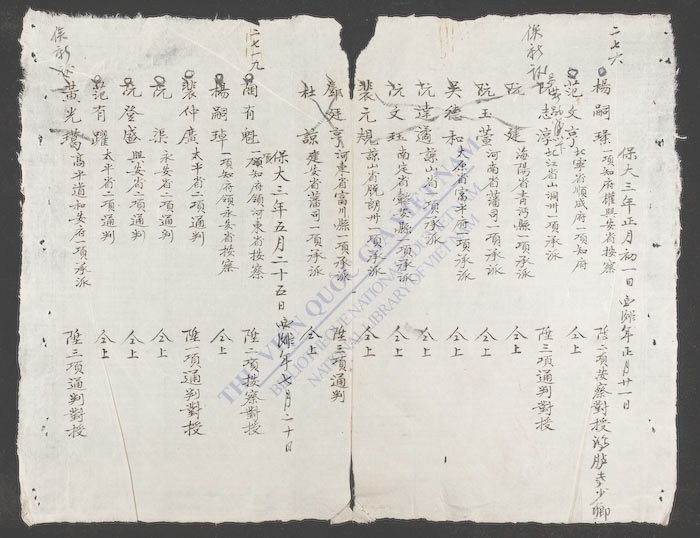 二七六
保大三年正月初一日 年正月廿一日
楊嗣 一項知府權興安省按察 陞二項按察對授鴻臚寺少卿
范文亨 北寧省順成府一項知府 仝上
保
志淳 北江省山洞州一項承派 陞三項通判對授
阮建 海陽省青河縣一項承派 仝上
阮玉萱 河南省藩司一項承派 仝上
吳德和 太原省富平府一項承派 仝上
阮達 諒山省一項承派 仝上
阮文珏 南定省安縣一項承派 仝上
裴元規 諒山省脫朗州一項承派 仝上
鄧廷亨 河東省富川縣一項承派 陞三項通判
杜諒 建安省藩司一項承派 仝上
保大三年五月二十五日 年七月二十日
二七一九
有魁 知府領河東省按察 陞二項按察對授
楊嗣 一項知府領永安省按察 仝上
裴仲廣 太平省二項通判 陞一項通判對授
阮渠 永安省二項通判 仝上
阮登盛 興安省二項通判 仝上
范有躍 太平省二項通判 仝上
保
黃光 高平道和安府一項承派 陞三項通判對授
THƯ VIỆN QUỐC GIA VIỆT NAM
BIBLIOTHÈQUE NATIONALE DU VIETNAM
NATIONAL LIBRARY OF VIETNAM